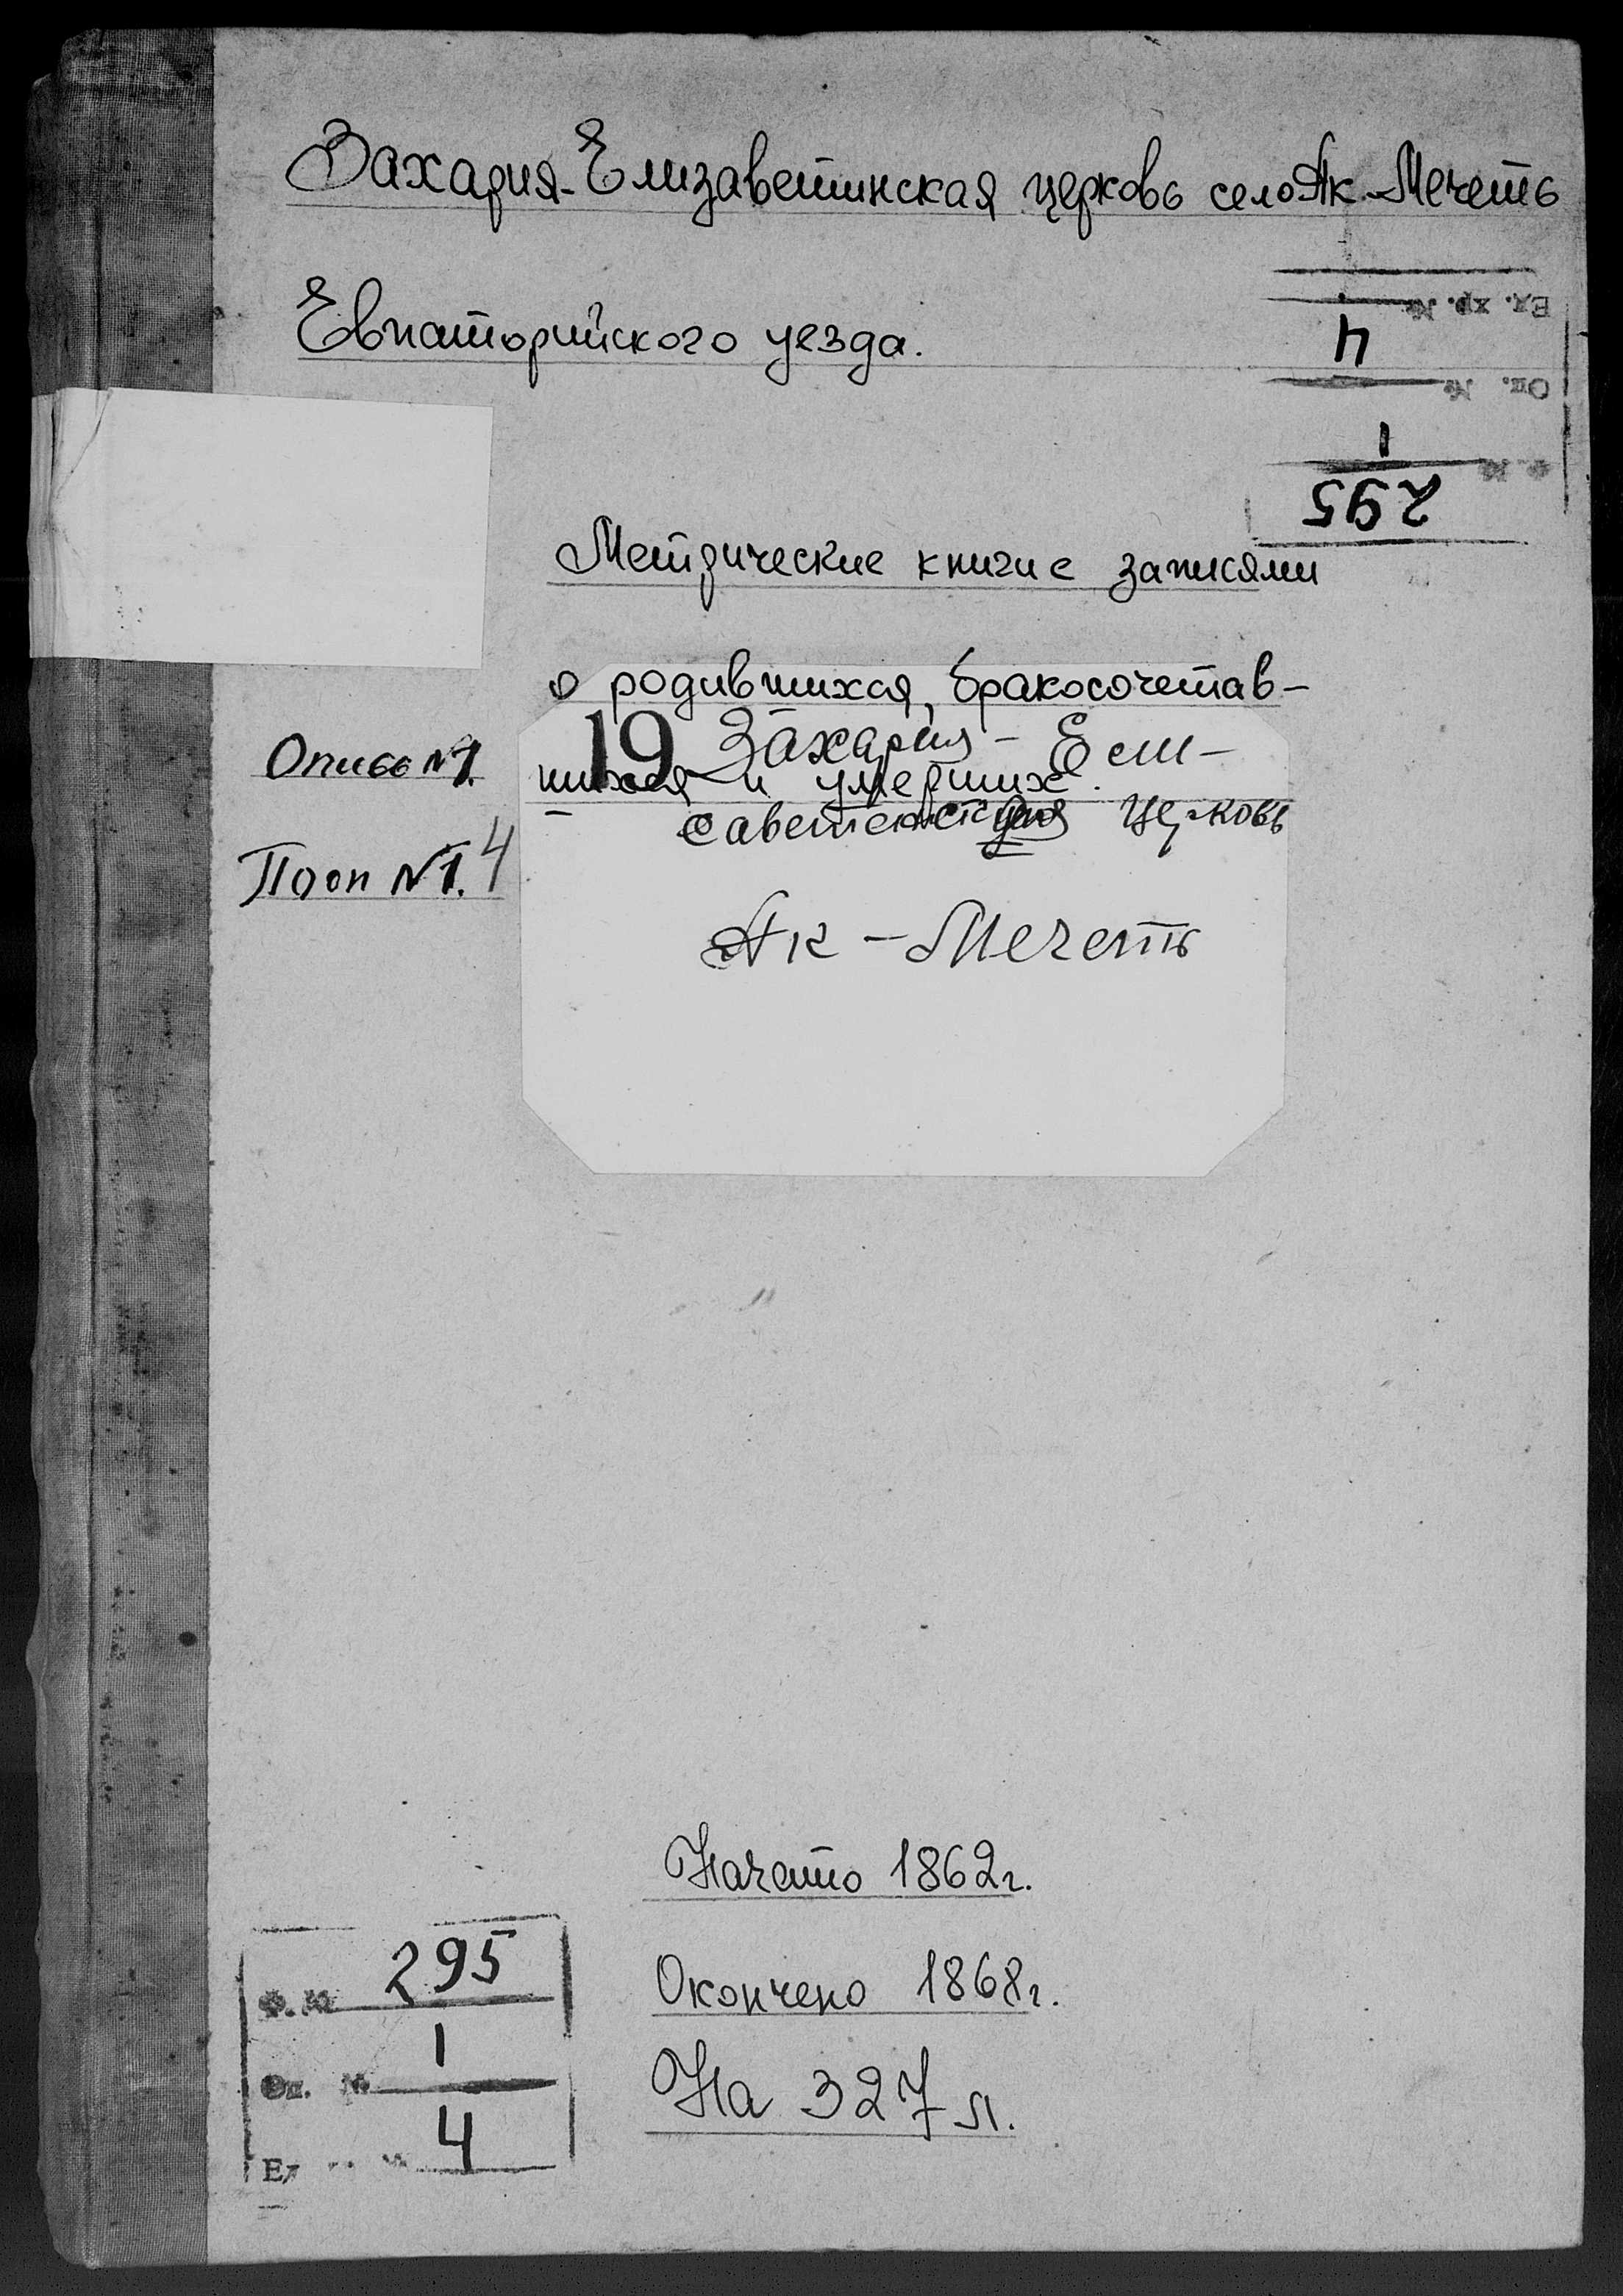 Захария-Елизаветинская церковь село Ак-Мечеть
Евпаторийского уезда.
Ед. хр. №
4
Оп. №
1
Ф. №
295
Метрические книги с записями
о родившихся, бракосочетав-
19 Захария - Ели-
шихся и умерших.
саветенская церковь
Ак-Мечеть
Опись №1.
Пооп №1. 4
Начато 1862г.
Окончено 1868г.
На 327 л.
Ф. № 295
Оп. № 1
Ед 4